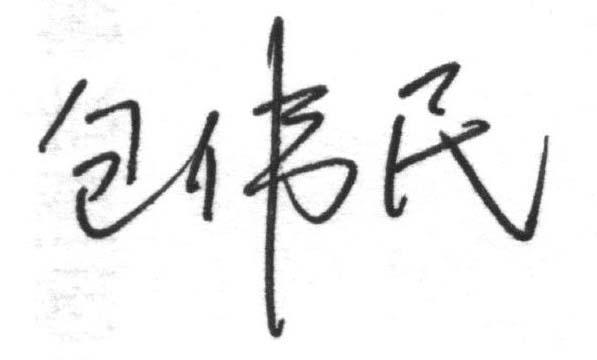 包伟民